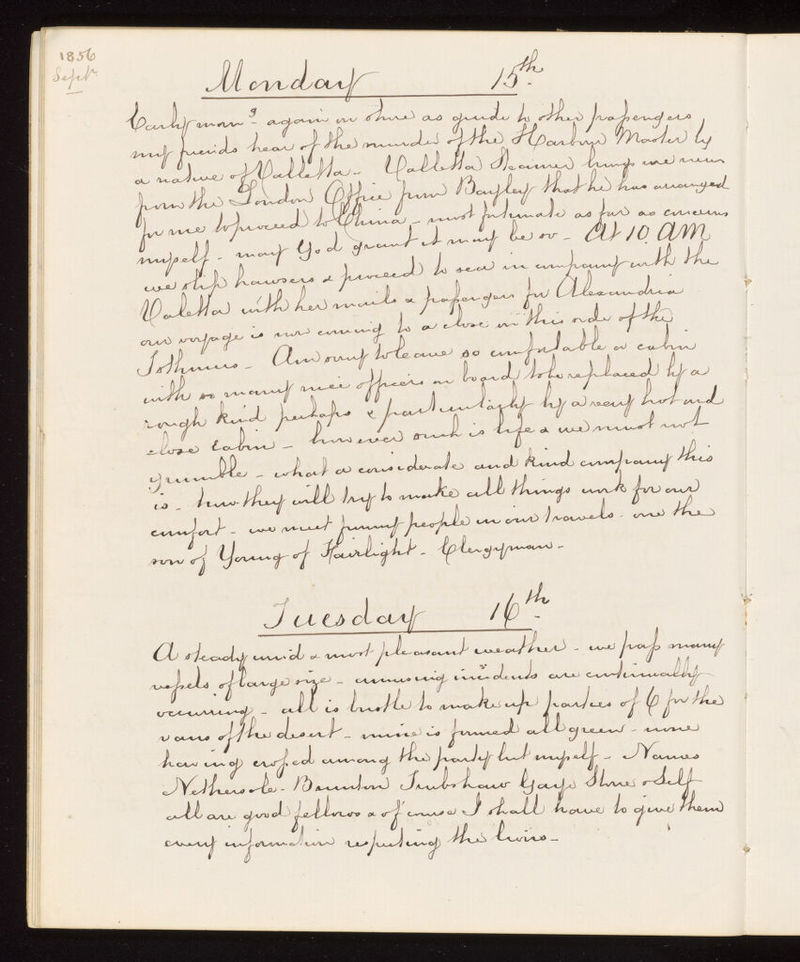 1856
Sept
Monday 15th
Early morng again on shore as guide to other passengers
my friends hear of the murder of the Harbour Master by
a native of Valletta - Valletta Steamer brings me news
from the London Office from Bayley that he has arranged
for me to proceed to China - most fortunate as far as concerns
myself - may God grant it may be so - At 10 AM
we slip hawsers & proceed to sea in company with the
Valetta with her mails & passengers for Alexandria
our voyage is now coming to a close on this side of the
Isthmus - Am sorry to leave so comfortable a cabin
with so many nice officers on board to be replaced by a
rough kind perhaps & particularly by a very hot and
close cabin - however such is life & we must not
grumble - what a considerate and kind company this
is - how they will try to make all things work for our
comfort - we meet funny people in our travels - one the
son of Young of Fairlight - Clergyman -
Tuesday 16th
A steady wind & most pleasant weather - we pass many
vessels of large size - amusing incidents are continually
occurring - all is bustle to make up parties of 6 for the
vans of the desert - mine is formed all green - none
having crossed among the party but myself - Names
Nethersole - Brunton Stone & Self
all are good fellows & of course I shall have to give them
every information respecting the